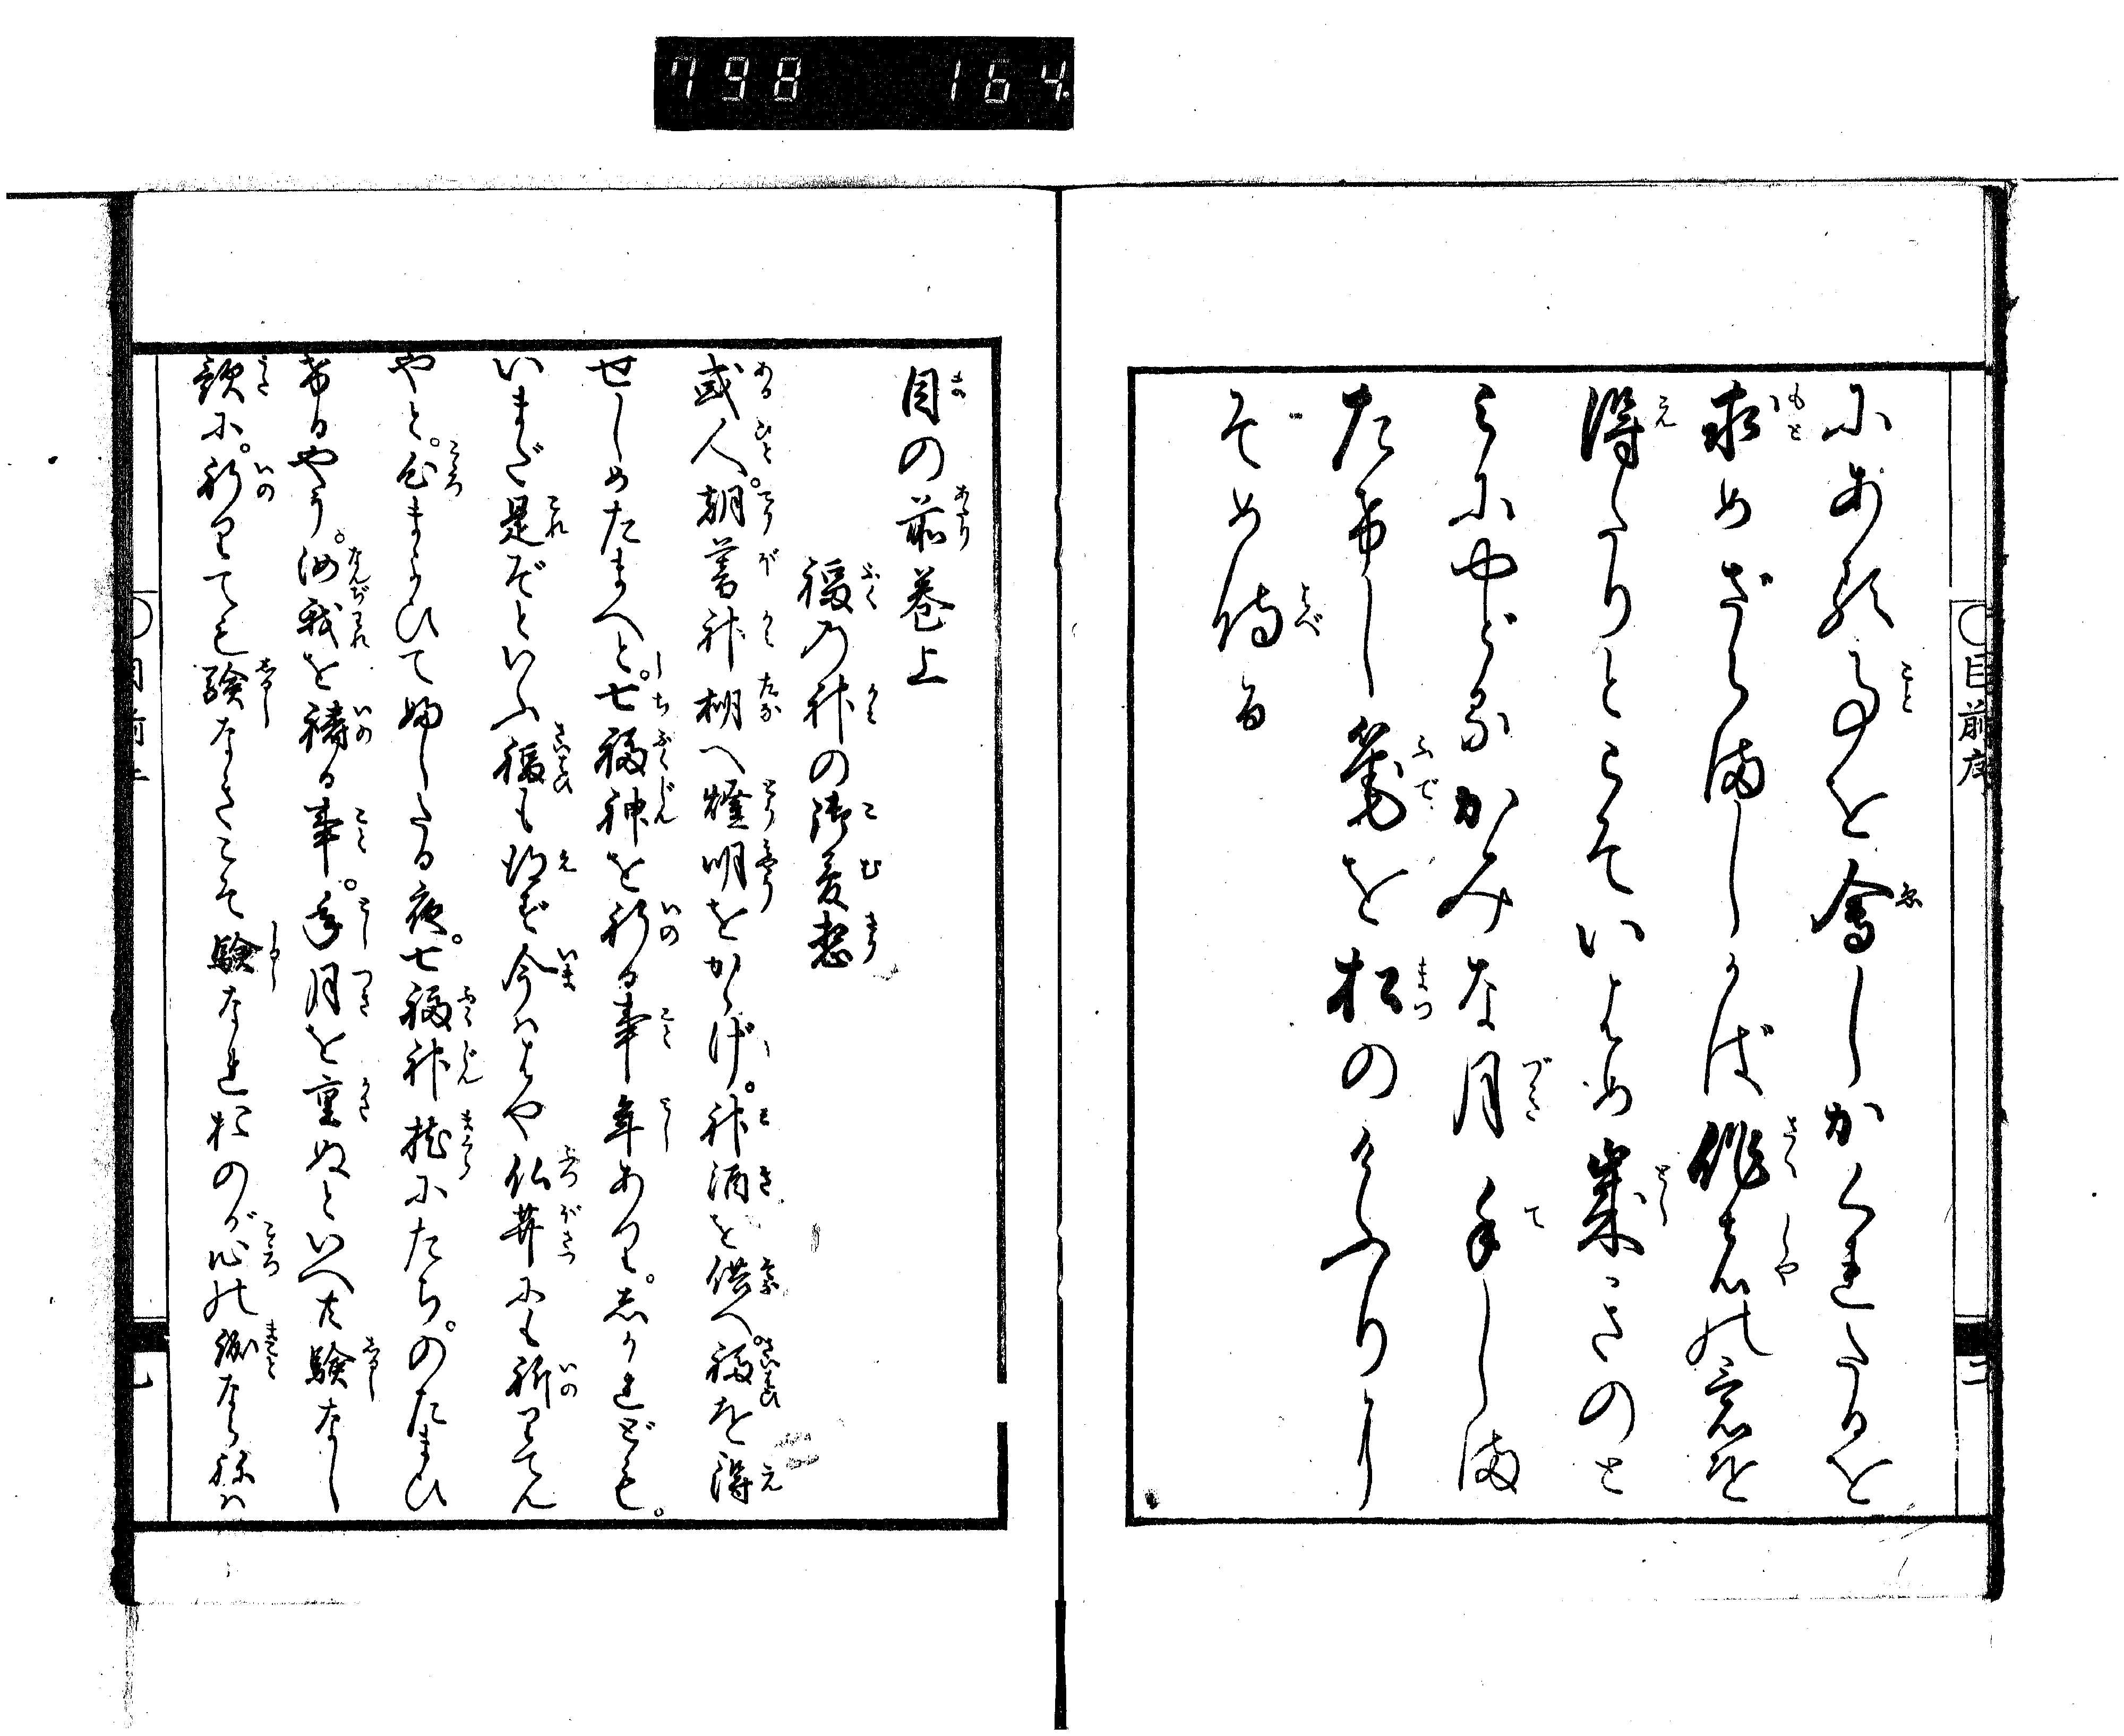 798 164
にある事を会しかくれたるを
求めざらましかば作者の意を
得たりとこそいはめ巣さのと
らにやどるかみな月手しま
たきし筆を松のけふりに
そめ侍る
目前序
二
目の前巻上
福の神の御夢想
或人。朝暮神棚へ燈明をかゝげ。神酒を供へ。福を得
せしめたまへと。七福神を祈る事年あり。しかれども。
いまだ是ぞといふ福も得ず今ははや仏菩薩にも祈りてん
やと。心まよひて臥したる夜。七福神枕にたち。のたまひ
けるやう。汝我を祷る事。年月を重ぬといへ共験なし
歟に。祈りても験なきこそ験なれおのが心の誠ならねは